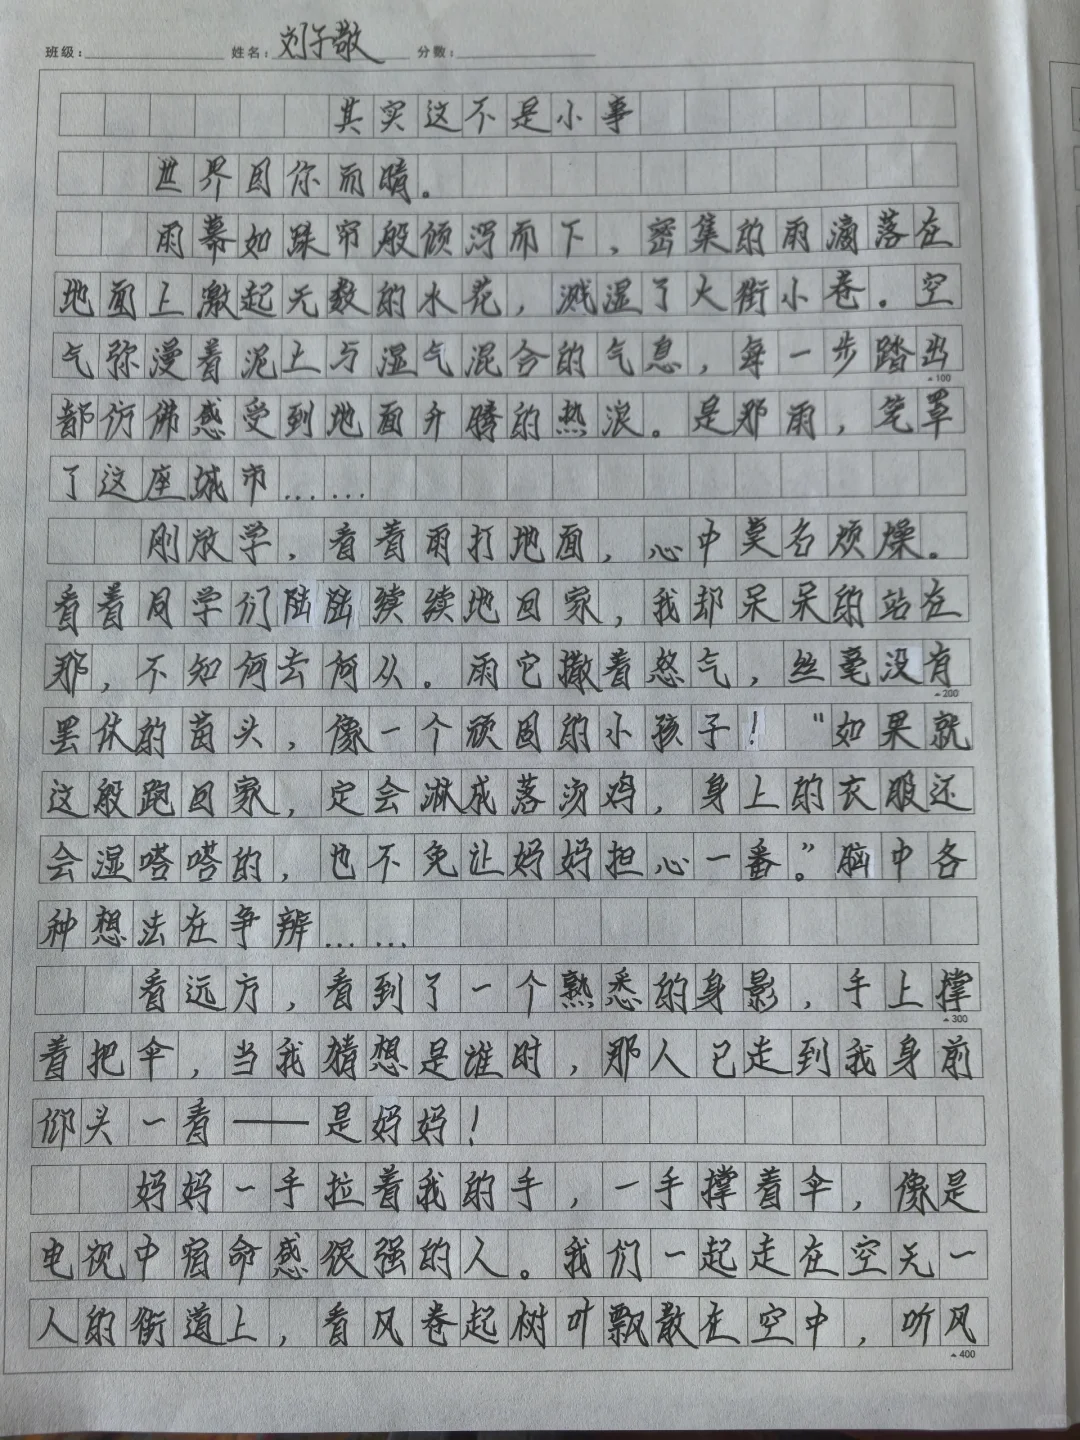 班级： 姓名：刘子敬 分数：
其实这不是小事
世界因你而晴。
雨幕如珠帘般倾泻而下，密集的雨滴落在
地面上激起无数的水花，溅湿了大街小巷。空
气弥漫着泥土与湿气混合的气息，每一步踏出
▲100
都仿佛感受到地面升腾的热浪。是那雨，笼罩
了这座城市……
刚放学，看着雨打地面，心中莫名烦燥。
看着同学们陆陆续续地回家，我却呆呆的站在
那，不知何去何从。雨它撒着怒气，丝毫没有
▲200
罢休的苗头，像一个顽固的小孩子！“如果就
这般跑回家，定会淋成落汤鸡，身上的衣服还
会湿嗒嗒的，也不免让妈妈担心一番。”脑中各
种想法在争辨……
看远方，看到了一个熟悉的身影，手上撑
▲300
着把伞，当我猜想是谁时，那人已走到我身前
仰头一看——是妈妈！
妈妈一手拉着我的手，一手撑着伞，像是
电视中宿命感很强的人。我们一起走在空无一
人的街道上，看风卷起树叶飘散在空中，听风
▲400